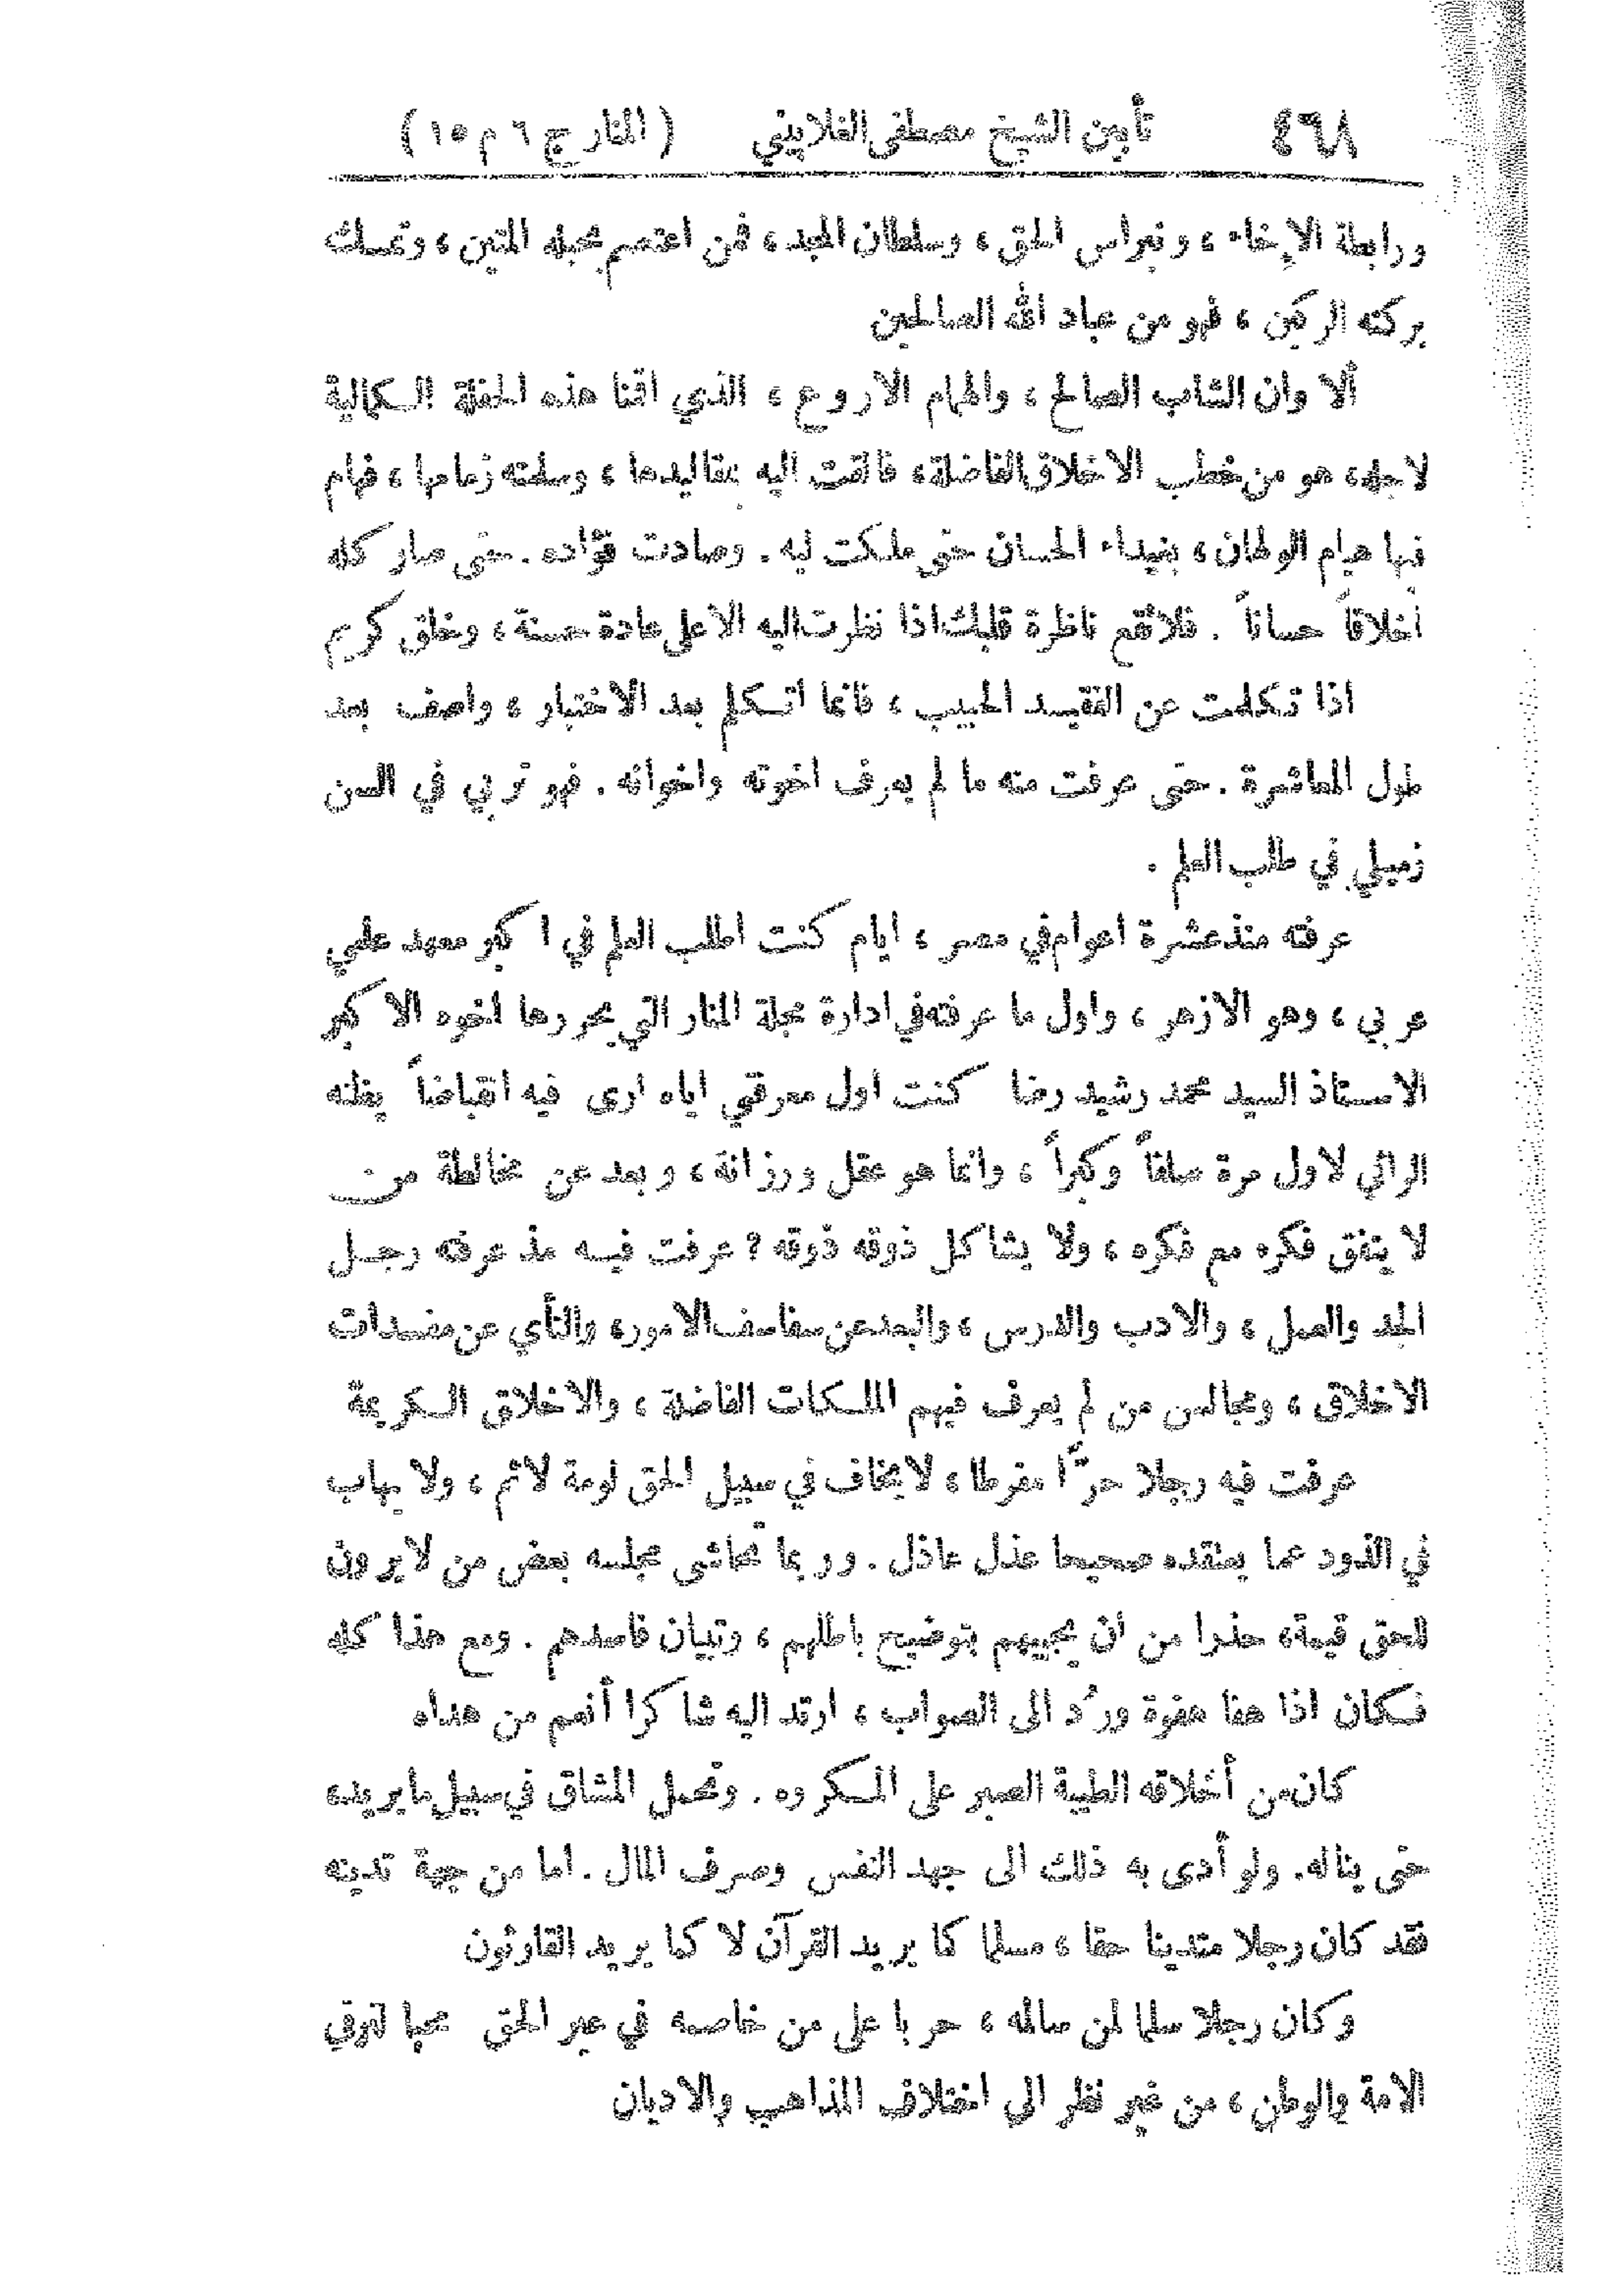 ٤٦٨ تأبين الشيخ مصطفى الغلاييني ( المنار ج ٦ م ١٥ )
ورابطة الإخاء ، ونبراس الحق ، وسلطان المجد ، فمن اعتصم بحبله المتين ، وتمسك
بركنه الركين ، فهو من عباد الله الصالحين
ألا وان الشاب الصالح ، والهمام الاروع ، الذي اقمنا هذه الحفلة الكمالية
لاجله ، هو من خطب الاخلاق الفاضلة ، فالقت اليه بمقاليدها ، وسلمته زمامها ، فهام
فيها هيام الولهان ، بغيداء الحسان حتى ملكت لبه . وصادت فؤاده . حتى صار كله
أخلاقاً حساناً . فلا تقع ناظرة قلبك اذا نظرت اليه الا على عادة حسنة ، وخلق كريم
اذا تكلمت عن الفقيد الحبيب ، فانما اتكلم بعد الاختبار ، واصف بعد
طول المعاشرة . حتى عرفت منه ما لم يعرف اخوته واخوانه . فهو تربي في السن
زميلي في طلب العلم .
عرفته منذ عشرة اعوام في مصر ، ايام كنت اطلب العلم في اكبر معهد علمي
عربي ، وهو الازهر ، واول ما عرفته في ادارة مجلة المنار التي يحررها اخوه الاكبر
الاستاذ السيد محمد رشيد رضا كنت اول معرفتي اياه ارى فيه انقباضاً يظنه
الرائي لاول مرة صلفاً وكبراً ، وانما هو عقل ورزانة ، وبعد عن مخالطة من
لا يتفق فكره مع فكره ، ولا يشاكل ذوقه ذوقه ؟ عرفت فيه مذ عرفته رجل
الجد والعمل ، والادب والدرس ، والبعد عن سفاسف الامور ، والنأي عن مفسدات
الاخلاق ، ومجالس من لم يعرف فيهم الملكات الفاضلة ، والاخلاق الكريمة
عرفت فيه رجلا حرّا مفرطا ، لا يخاف في سبيل الحق لومة لائم ، ولا يهاب
في الذود عما يعتقده صحيحا عذل عاذل . وربما تحاشى مجلسه بعض من لا يرون
للحق قيمة ، حذرا من أن يجيبهم بتوضيح باطلهم ، وتبيان فاسدهم . ومع هذا كله
فكان اذا هفا هفوة ورُد الى الصواب ، ارتد اليه شاكرا أنعم من هداه
كان من أخلاقه الطيبة الصبر على المكروه . وتحمل المشاق في سبيل ما يريده
حتى يناله . ولو أدى به ذلك الى جهد النفس وصرف المال . اما من جهة تدينه
فقد كان رجلا متدينا حقا ، مسلما كما يريد القرآن لا كما يريد القارئون
وكان رجلا سلما لمن سالمه ، حربا على من خاصمه في غير الحق محبا لترقي
الامة والوطن ، من غير نظر الى اختلاف المذاهب والاديان